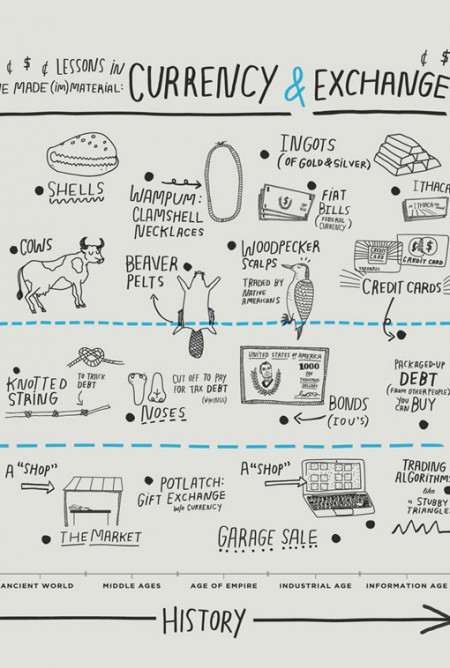 ¢ $ ¢ LESSONS IN
E MADE (im)MATERIAL:
CURRENCY & EXCHANGE
¢ $
SHELLS
WAMPUM:
CLAMSHELL
NECKLACES
INGOTS
(OF GOLD & SILVER)
FIAT
BILLS
(FEDERAL
CURRENCY)
ITHACA
COWS
BEAVER
PELTS
WOODPECKER
SCALPS
TRADED BY
NATIVE
AMERICANS
CREDIT
CARD
CREDIT CARD
CREDIT CARDS
KNOTTED
STRING
TO TRACK
DEBT
NOSES
CUT OFF TO PAY
FOR TAX DEBT
(VIKINGS)
UNITED STATES OF AMERICA
1000
THOUSAND
DOLLARS
BONDS
(IOU'S)
PACKAGED-UP
DEBT
(FROM OTHER PEOPLE)
YOU CAN BUY
A "SHOP"
THE MARKET
POTLATCH:
GIFT EXCHANGE
w/o CURRENCY
A "SHOP"
GARAGE SALE
TRADING
ALGORITHMS
like
"STUBBY
TRIANGLE
ANCIENT WORLD
MIDDLE AGES
AGE OF EMPIRE
INDUSTRIAL AGE
INFORMATION AGE
HISTORY